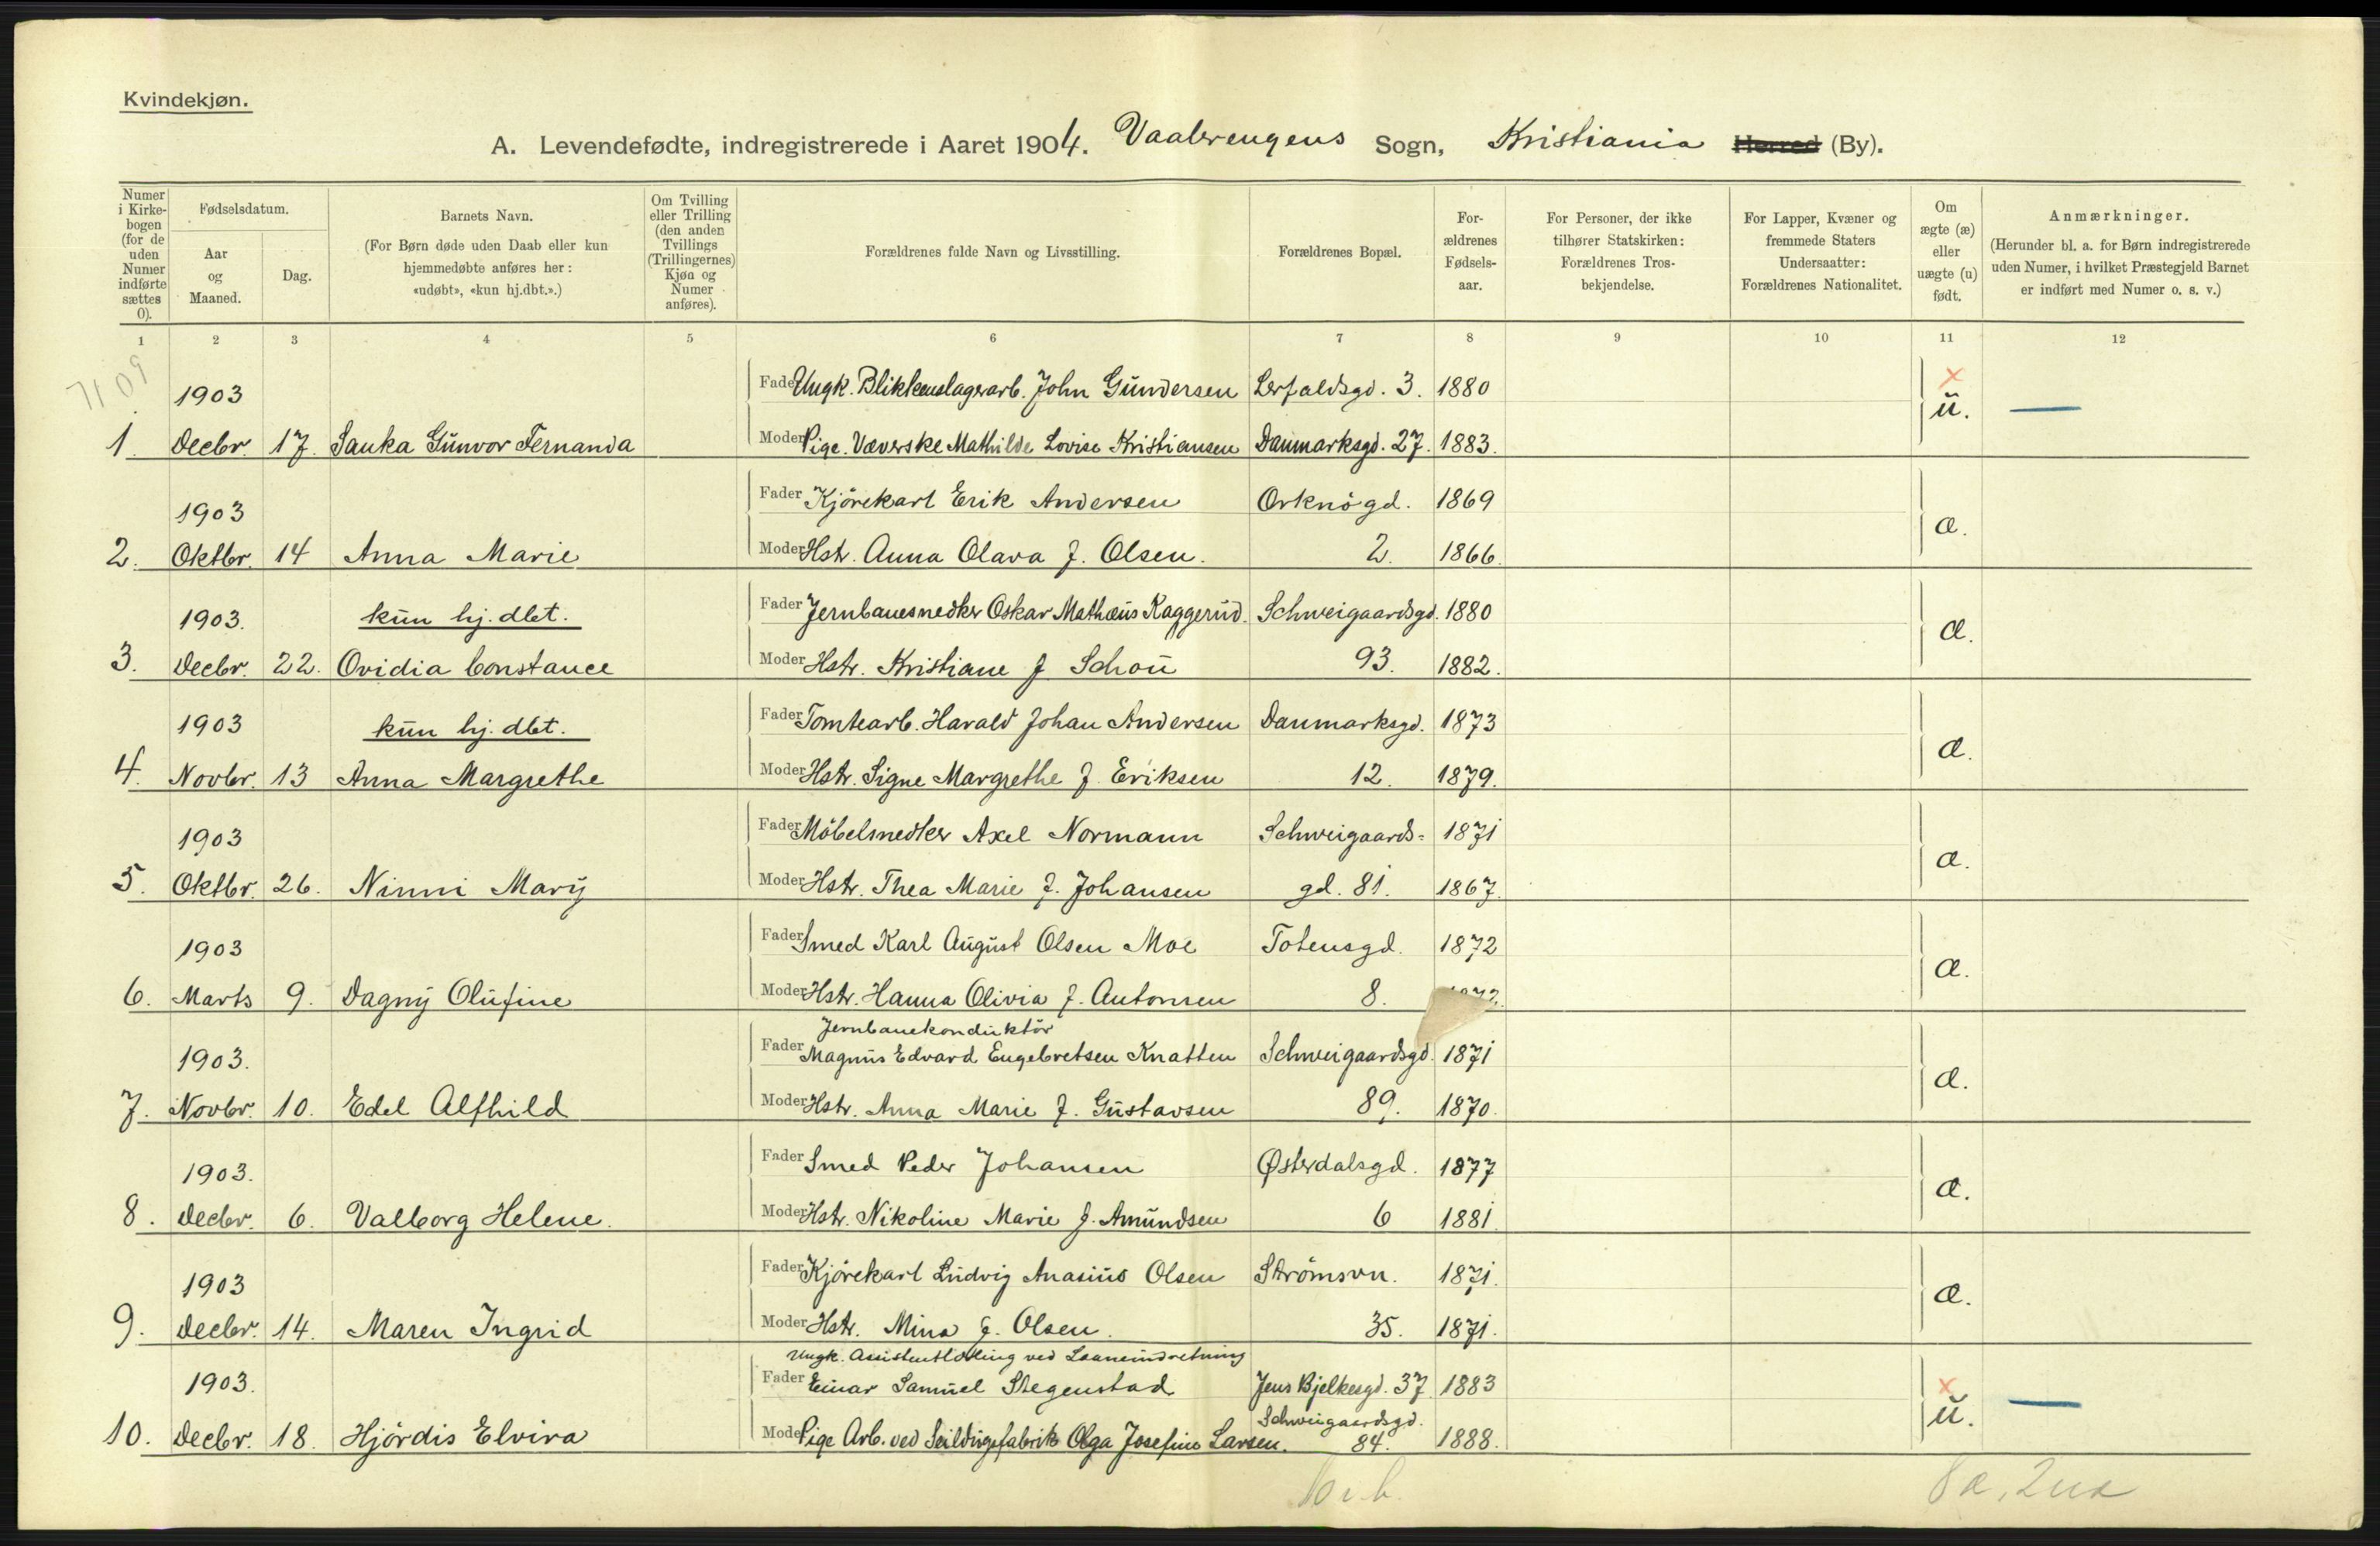 Kvindekjøn.
A. Levendefødte, indregistrerede i Aaret 1904. Vaalerengens Sogn, Kristiania Herred (By).
Numer i Kirkebogen (for de uden Numer indførte sættes 0).
Fødselsdatum.
Aar og Maaned.
Dag.
Barnets Navn.
(For Børn døde uden Daab eller kun hjemmedøbte anføres her: «udøbt», «kun hj.dbt.».)
Om Tvilling eller Trilling (den anden Tvillings (Trillingernes) Kjøn og Numer anføres).
Forældrenes fulde Navn og Livsstilling.
Forældrenes Bopæl.
For-ældrenes Fødsels-aar.
For Personer, der ikke tilhører Statskirken: Forældrenes Tros-bekjendelse.
For Lapper, Kvæner og fremmede Staters Undersaatter: Forældrenes Nationalitet.
Om ægte (æ) eller uægte (u) født.
Anmærkninger.
(Herunder bl. a. for Børn indregistrerede uden Numer, i hvilket Præstegjeld Barnet er indført med Numer o. s. v.)
1 2 3 4 5 6 7 8 9 10 11 12
7109
1903 Fader Ungk. Blikkenslagerarb. John Gundersen Lerfaldsgd. 3. 1880 x
u. —
1. Decbr. 17. Sanka Gunvor Fernanda Moder Pige. Væverske Mathilde Lovise Kristiansen Danmarksgd. 27. 1883.
1903 Fader Kjörekarl Erik Andersen Orknögd. 1869
æ.
2. Oktbr. 14 Anna Marie Moder Hstr. Anna Olava f. Olsen. 2. 1866.
1903. kun hj. dbt. Fader Jernbanesnedker Oskar Mathæus Kaggerud. Schweigaardsgd. 1880
æ.
3. Decbr. 22. Ovidia Constance Moder Hstr. Kristiane f Schou 93. 1882.
1903 kun hj. dbt. Fader Tomtearb. Harald Johan Andersen Danmarksgd. 1873
æ.
4. Novbr. 13 Anna Margrethe Moder Hstr. Signe Margrethe f. Eriksen 12. 1879.
1903 Fader Möbelsnedker Axel Normann Schweigaards- 1871
æ.
5. Oktbr. 26. Ninni Mary Moder Hstr. Thea Marie f. Johansen gd. 81. 1867.
1903 Fader Smed Karl August Olsen Moe Totensgd. 1872
æ.
6. Marts 9. Dagny Olufine Moder Hstr. Hanna Olivia f. Antonsen 8.
Jernbanekonduktör
1903. Fader Magnus Edvard Engebretsen Knatten Schweigaardsgd. 1871
æ.
7. Novbr. 10. Edel Alfhild Moder Hstr. Anna Marie f. Gustavsen 89. 1870.
1903. Fader Smed Peder Johansen Østerdalsgd. 1877
æ.
8. Decbr. 6. Valborg Helene. Moder Hstr. Nikoline Marie f. Amundsen 6 1881.
1903 Fader Kjörekarl Ludvig Anasius Olsen Strömsvn. 1871.
æ.
9. Decbr. 14. Maren Ingrid Moder Hstr. Mina f. Olsen. 35. 1871.
Ungk. Assistentlærling ved Laaneindretning
1903. Fader Einar Samuel Stegenstad Jens Bjelkesgd. 37. 1883 x
Schweigaardsgd. u. —
10. Decbr. 18. Hjördis Elvira Moder Pige Arb. ved Seildugsfabrik Olga Josefine Larsen. 84. 1888.
8 æ, 2 uæ